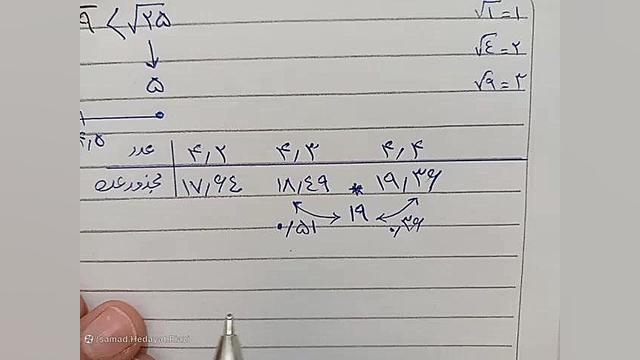 √۹ < √۲۵
√۱ = ۱
√۴ = ۲
۵
√۹ = ۳
۴٫۵
عدد ۴٫۲ ۴٫۳ ۴٫۴
مجذور عدد ۱۷٫۶۴ ۱۸٫۴۹ * ۱۹٫۳۶
۰٫۵۱ ۱۹ ۰٫۳۶
/samad.Hedayat.Riazi